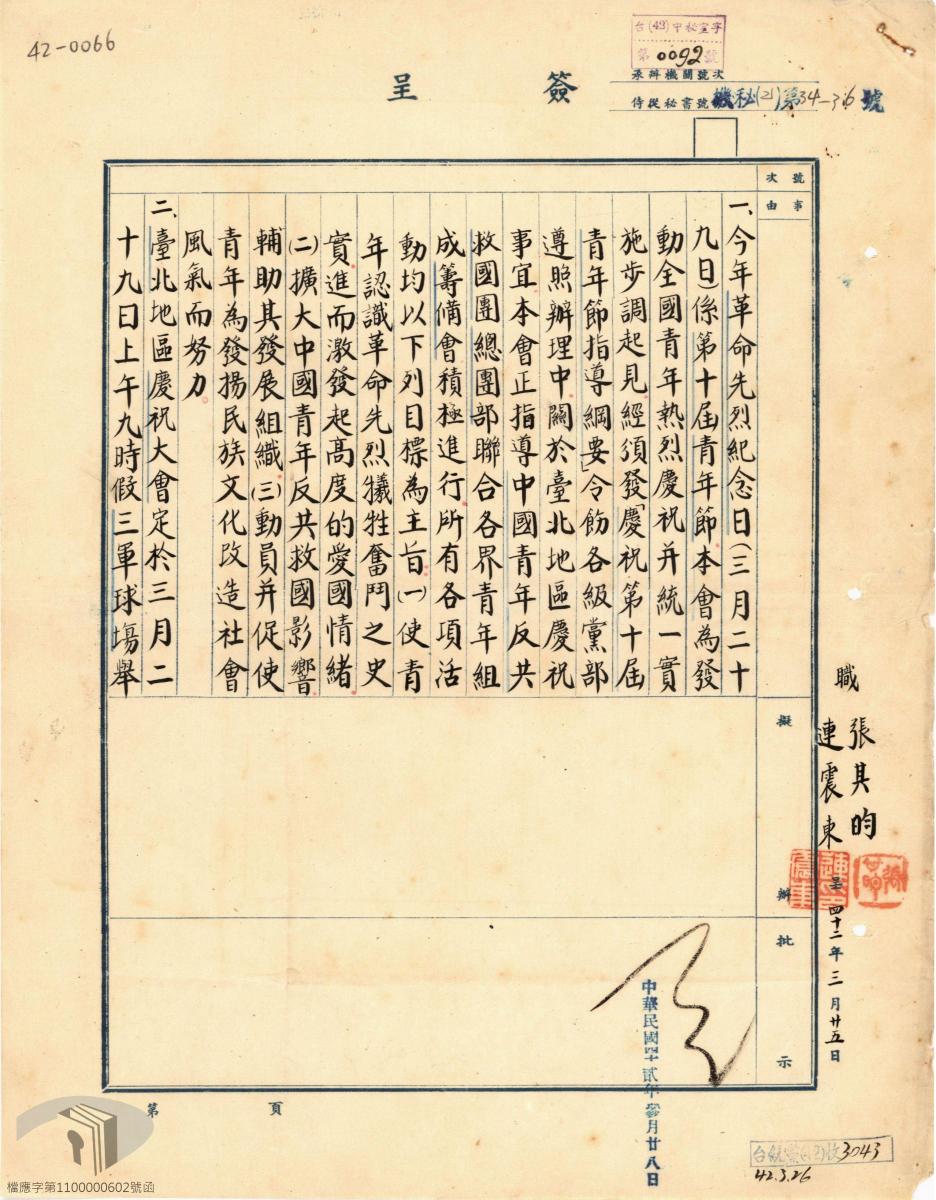 42-0066
台(42)中秘室字
第0092號
承辦機關號次
侍從秘書號 機秘(21)第34-36號
簽呈
號次
事由
一、今年革命先烈紀念日(三月二十
九日)係第十屆青年節本會為發
動全國青年熱烈慶祝并統一實
施步調起見經須發「慶祝第十屆
青年節指導綱要」令飭各級黨部
遵照辦理中關於臺北地區慶祝
事宜本會正指導中國青年反共
救國團總團部聯合各界青年組
成籌備會積極進行所有各項活
動均以下列目標為主旨:(一)使青
年認識革命先烈犧牲奮鬥之史
實進而激發起高度的愛國情緒
(二)擴大中國青年反共救國影響
輔助其發展組織(三)動員并促使
青年為發揚民族文化改造社會
風氣而努力。
二、臺北地區慶祝大會定於三月二
十九日上午九時假三軍球場舉
擬辦
批示
職 張其昀
連震東
呈 四十二年三月廿五日
中華民國四十貳年參月廿八日
第 頁
3043
42.3.26
檔應字第1100000602號函